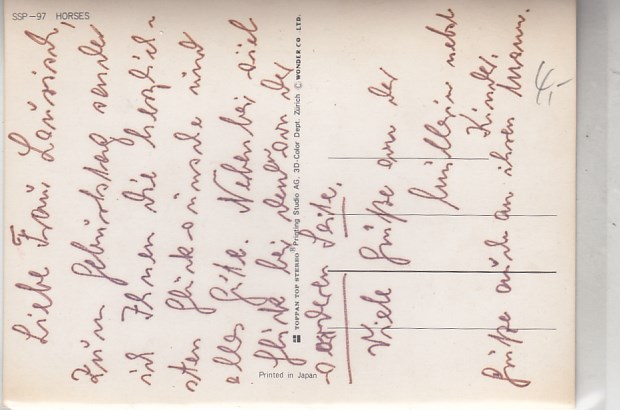 SSP–97 HORSES
Liebe Frau
Zum Geburtstag sende
ich Ihnen die herzlich-
sten Glückwünsche und
alles Gute. Nebenbei viel
Glück bei an der
anderen Seite.
Viele Grüße an der
nebst
Kinder.
Grüße auch an ihren Mann.
TOPPAN TOP STEREO ® Printing Studio AG, 3D-Color Dept. Zürich © WONDER CO. LTD.
Printed in Japan